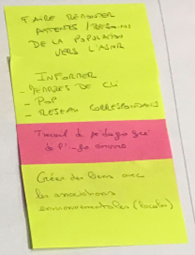 FAIRE REMONTER
ATTENTES / BESOINS
DE LA POPULATION
VERS L'ASNR
INFORMER
- MEMBRES DE CLI
- POP
- RESEAU CORRESPONDANTS
Travail de pédagogie
à l'
Créer des liens avec
les associations
environnementales (locales)